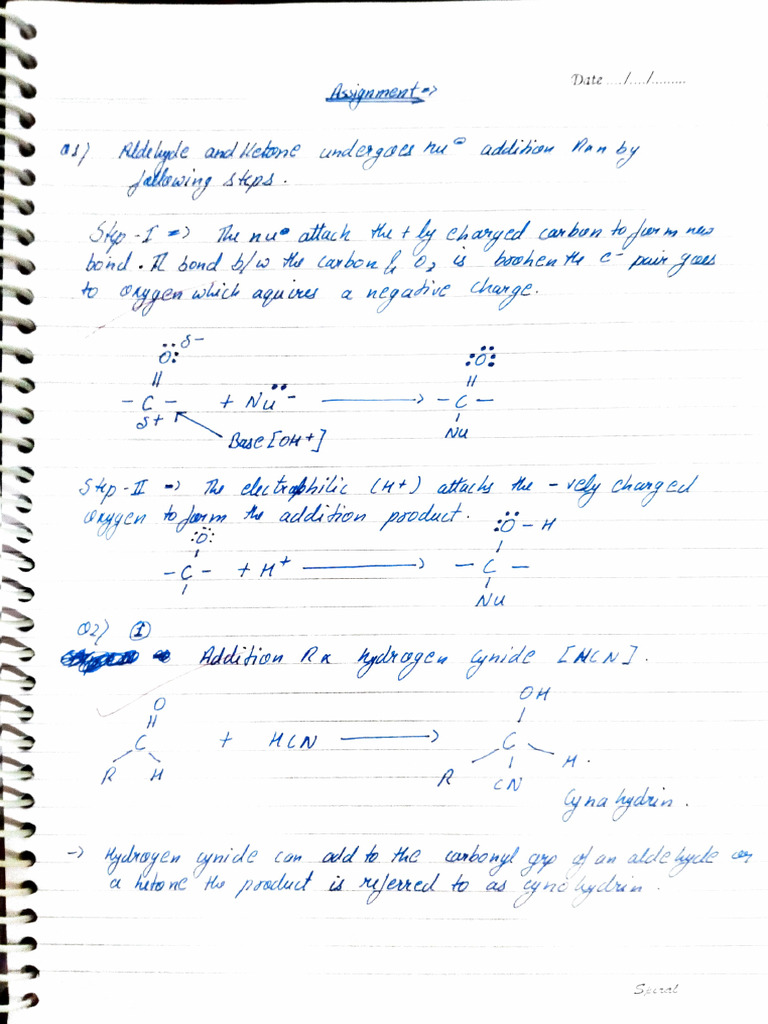 Date ..../..../.........
Assignment ⇒
Q1) Aldehyde and Ketone undergoes nu⊖ addition Rxn by
following steps.
Step-I ⇒ The nu⊖ attack the +ly charged carbon to form new
bond. π bond b/w the carbon & O₂ is broken the e⁻ pair goes
to oxygen which aquires a negative charge.
O δ-
||
- C - + Nu⁻ → - C -
δ+
O
||
Nu
Base [OH+]
Step-II ⇒ The electrophilic (H+) attacks the -vely charged
oxygen to form the addition product.
O
- C - + H⁺ → - C -
O - H
Nu
Q2) ①
Addition Rx hydrogen cynide [HCN].
O
||
C
R H
+ HCN →
OH
C
R H.
CN
Cynahydrin.
→ Hydrogen cynide can add to the carbonyl grp of an aldehyde or
a ketone the product is referred to as cynohydrin.
Spiral